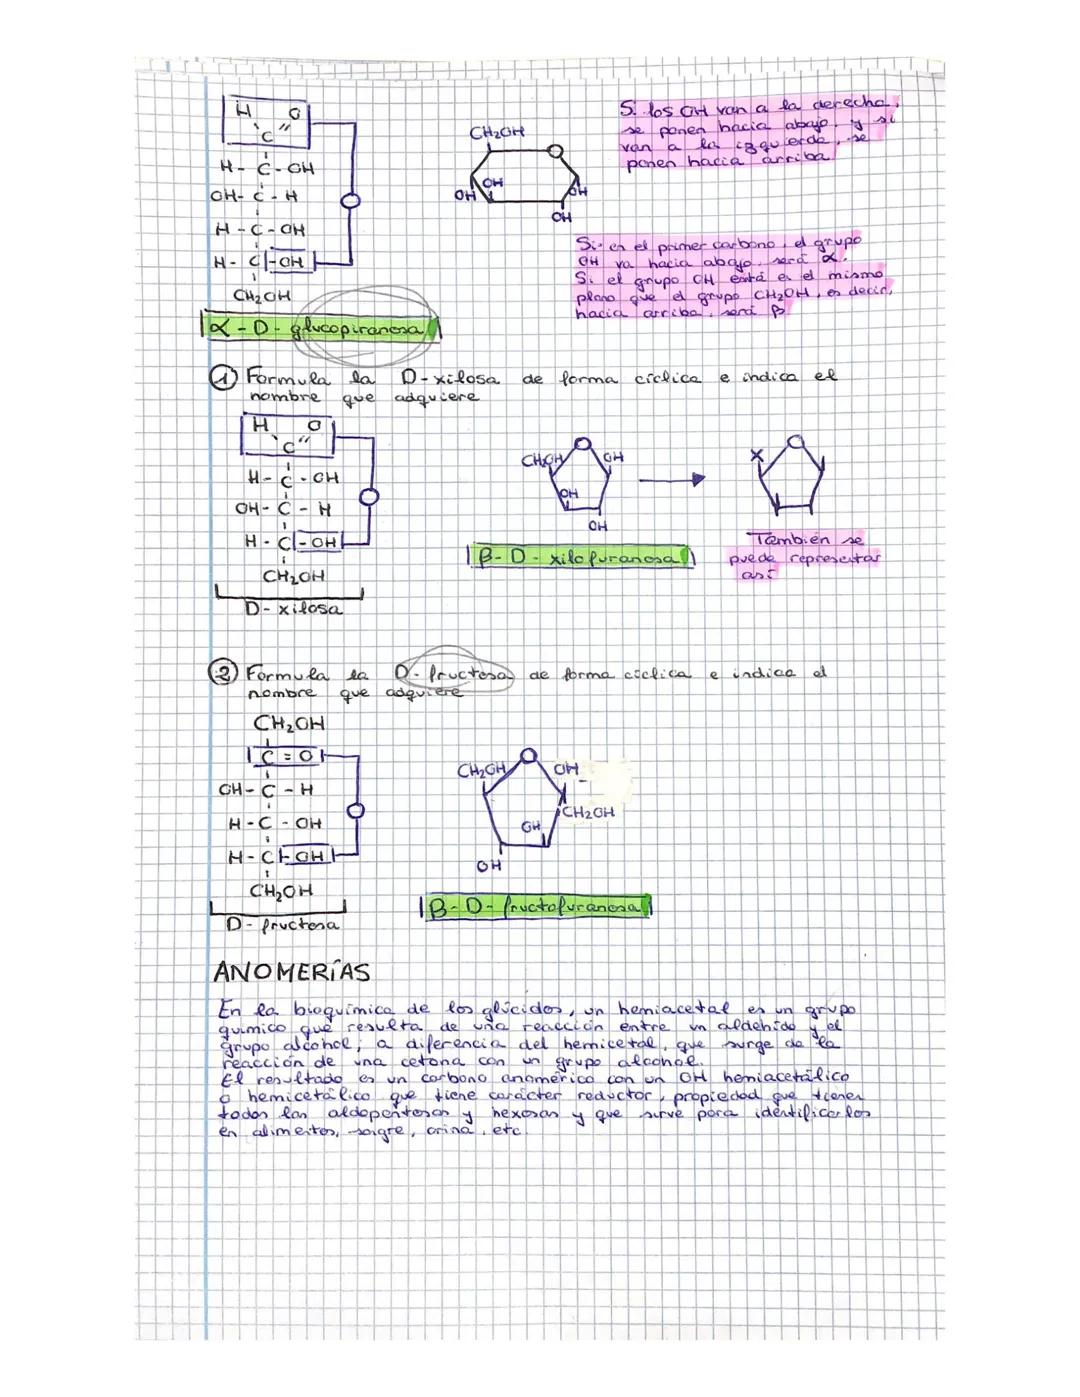 H O
C
H - C - OH
OH - C - H
H - C - OH
H - C - OH
CH₂OH
α - D - glucopiranosa
CH₂OH
OH
OH
OH
OH
Si los OH van a la derecha,
se ponen hacia abajo, y si
van a la izquierda, se
ponen hacia arriba
Si en el primer carbono, el grupo
OH va hacia abajo, será α.
Si el grupo OH está en el mismo
plano que el grupo CH₂OH, es decir,
hacia arriba, será β
① Formula la D-xilosa de forma cíclica e indica el
nombre que adquiere
H O
C
H - C - OH
OH - C - H
H - C - OH
CH₂OH
D - xilosa
OH
OH
OH
β - D - xilofuranosa
X
También se
puede representar
así
② Formula la D-fructosa de forma cíclica e indica el
nombre que adquiere
CH₂OH
C = O
OH - C - H
H - C - OH
H - C - OH
CH₂OH
D - fructosa
CH₂OH
OH
CH₂OH
OH
OH
β - D - fructofuranosa
ANOMERÍAS
En la bioquímica de los glúcidos, un hemiacetal es un grupo
químico que resulta de una reacción entre un aldehído y el
grupo alcohol; a diferencia del hemicetal, que surge de la
reacción de una cetona con un grupo alcohol.
El resultado es un carbono anomérico con un OH hemiacetálico
o hemicetálico que tiene carácter reductor, propiedad que tienen
todas las aldopentosas y hexosas y que sirve para identificarlos
en alimentos, sangre, orina, etc.